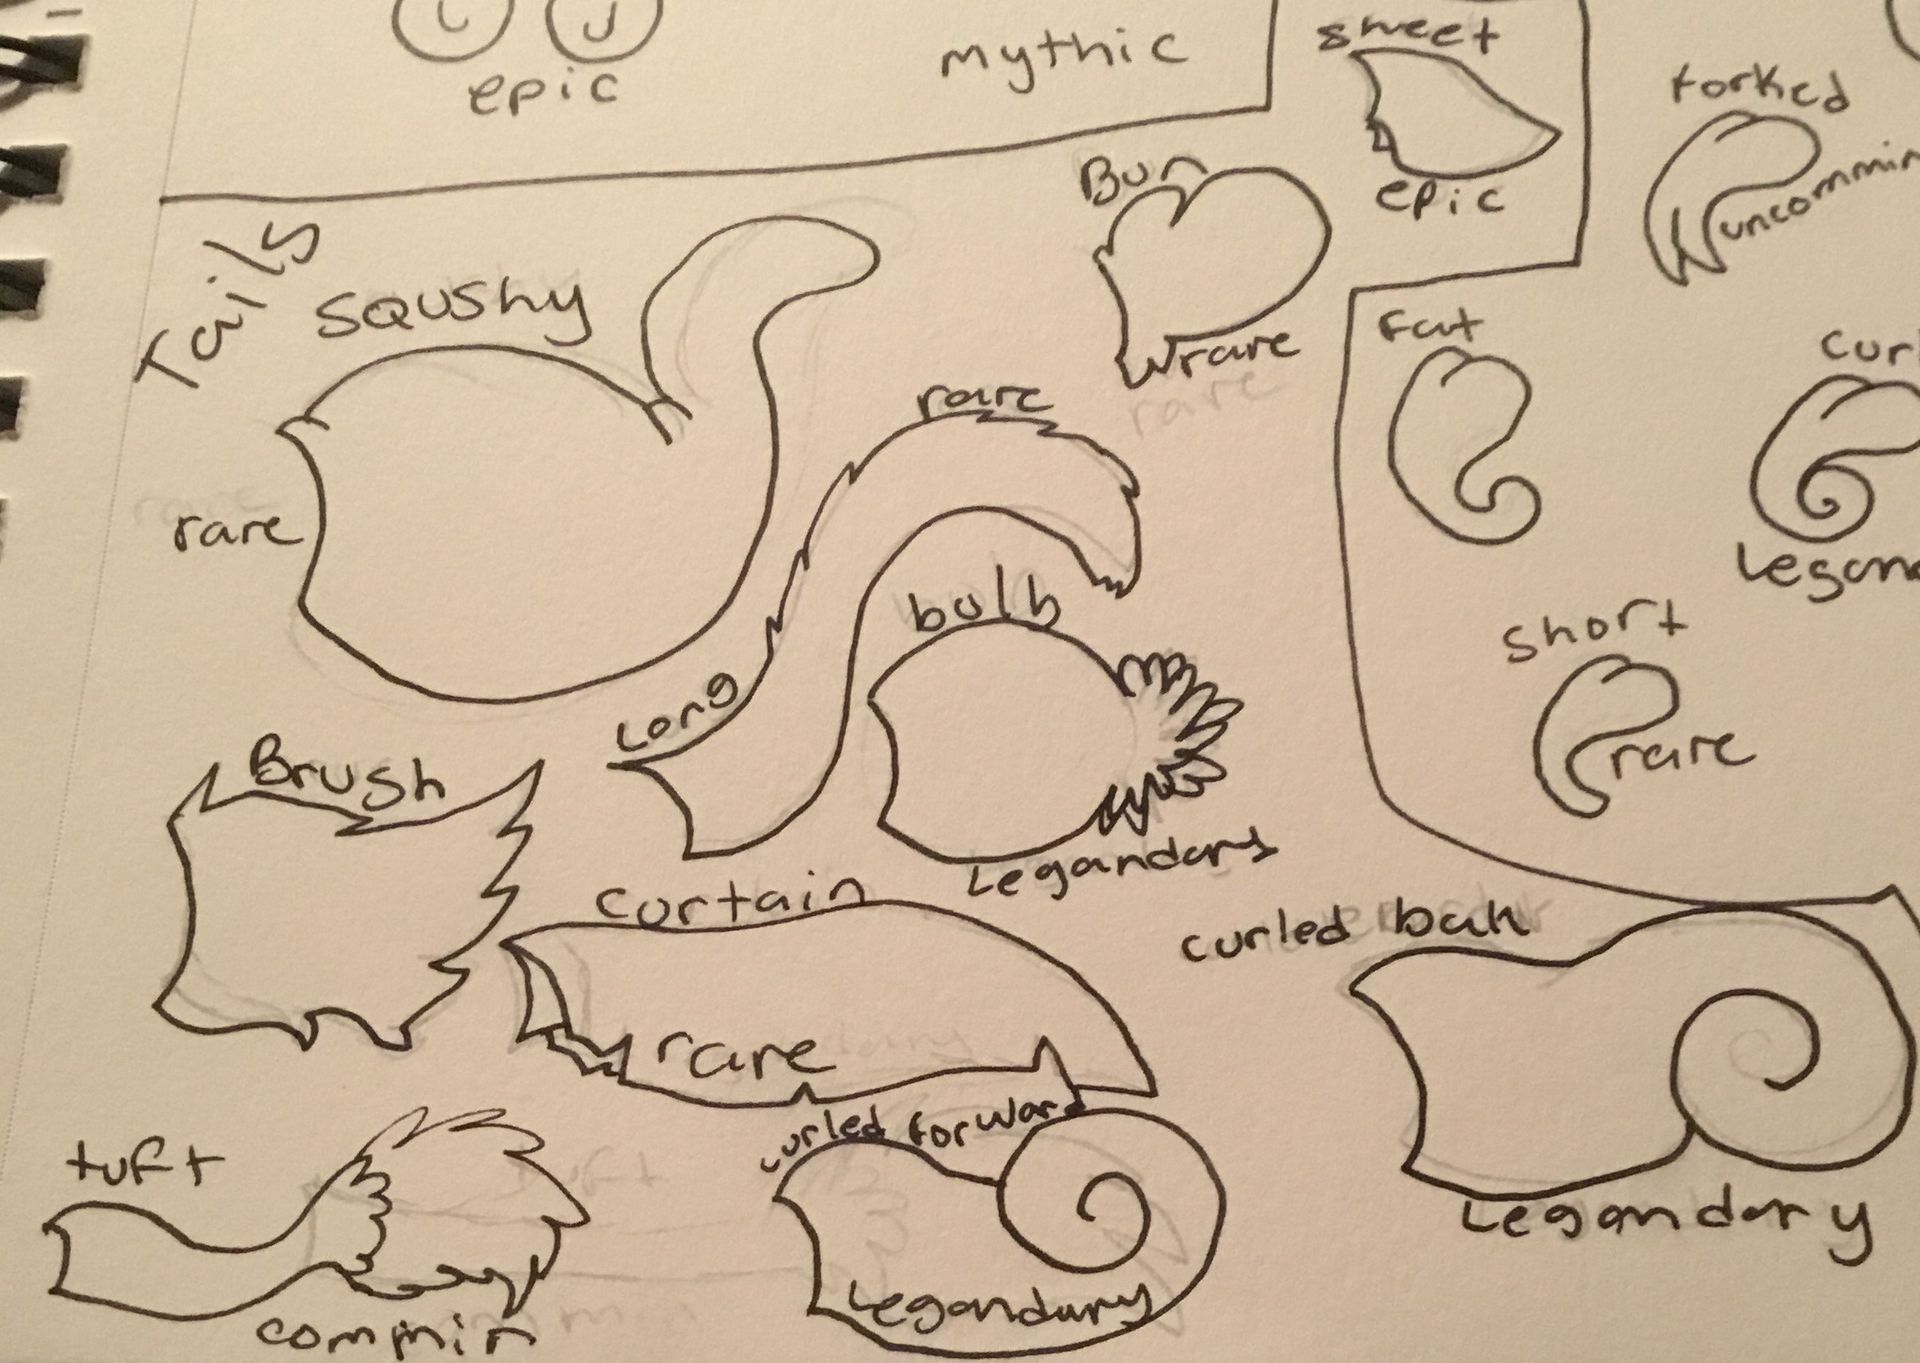 epic
mythic
sheet
epic
forked
uncommin
Tails
SQUShy
rare
Bun
Wrare
rare
fat
curl
Legan
short
rare
rare
Long
bulb
Legandary
Brush
curtain
rare
curled bak
Legandary
tuft
commin
curled forward
Legandary